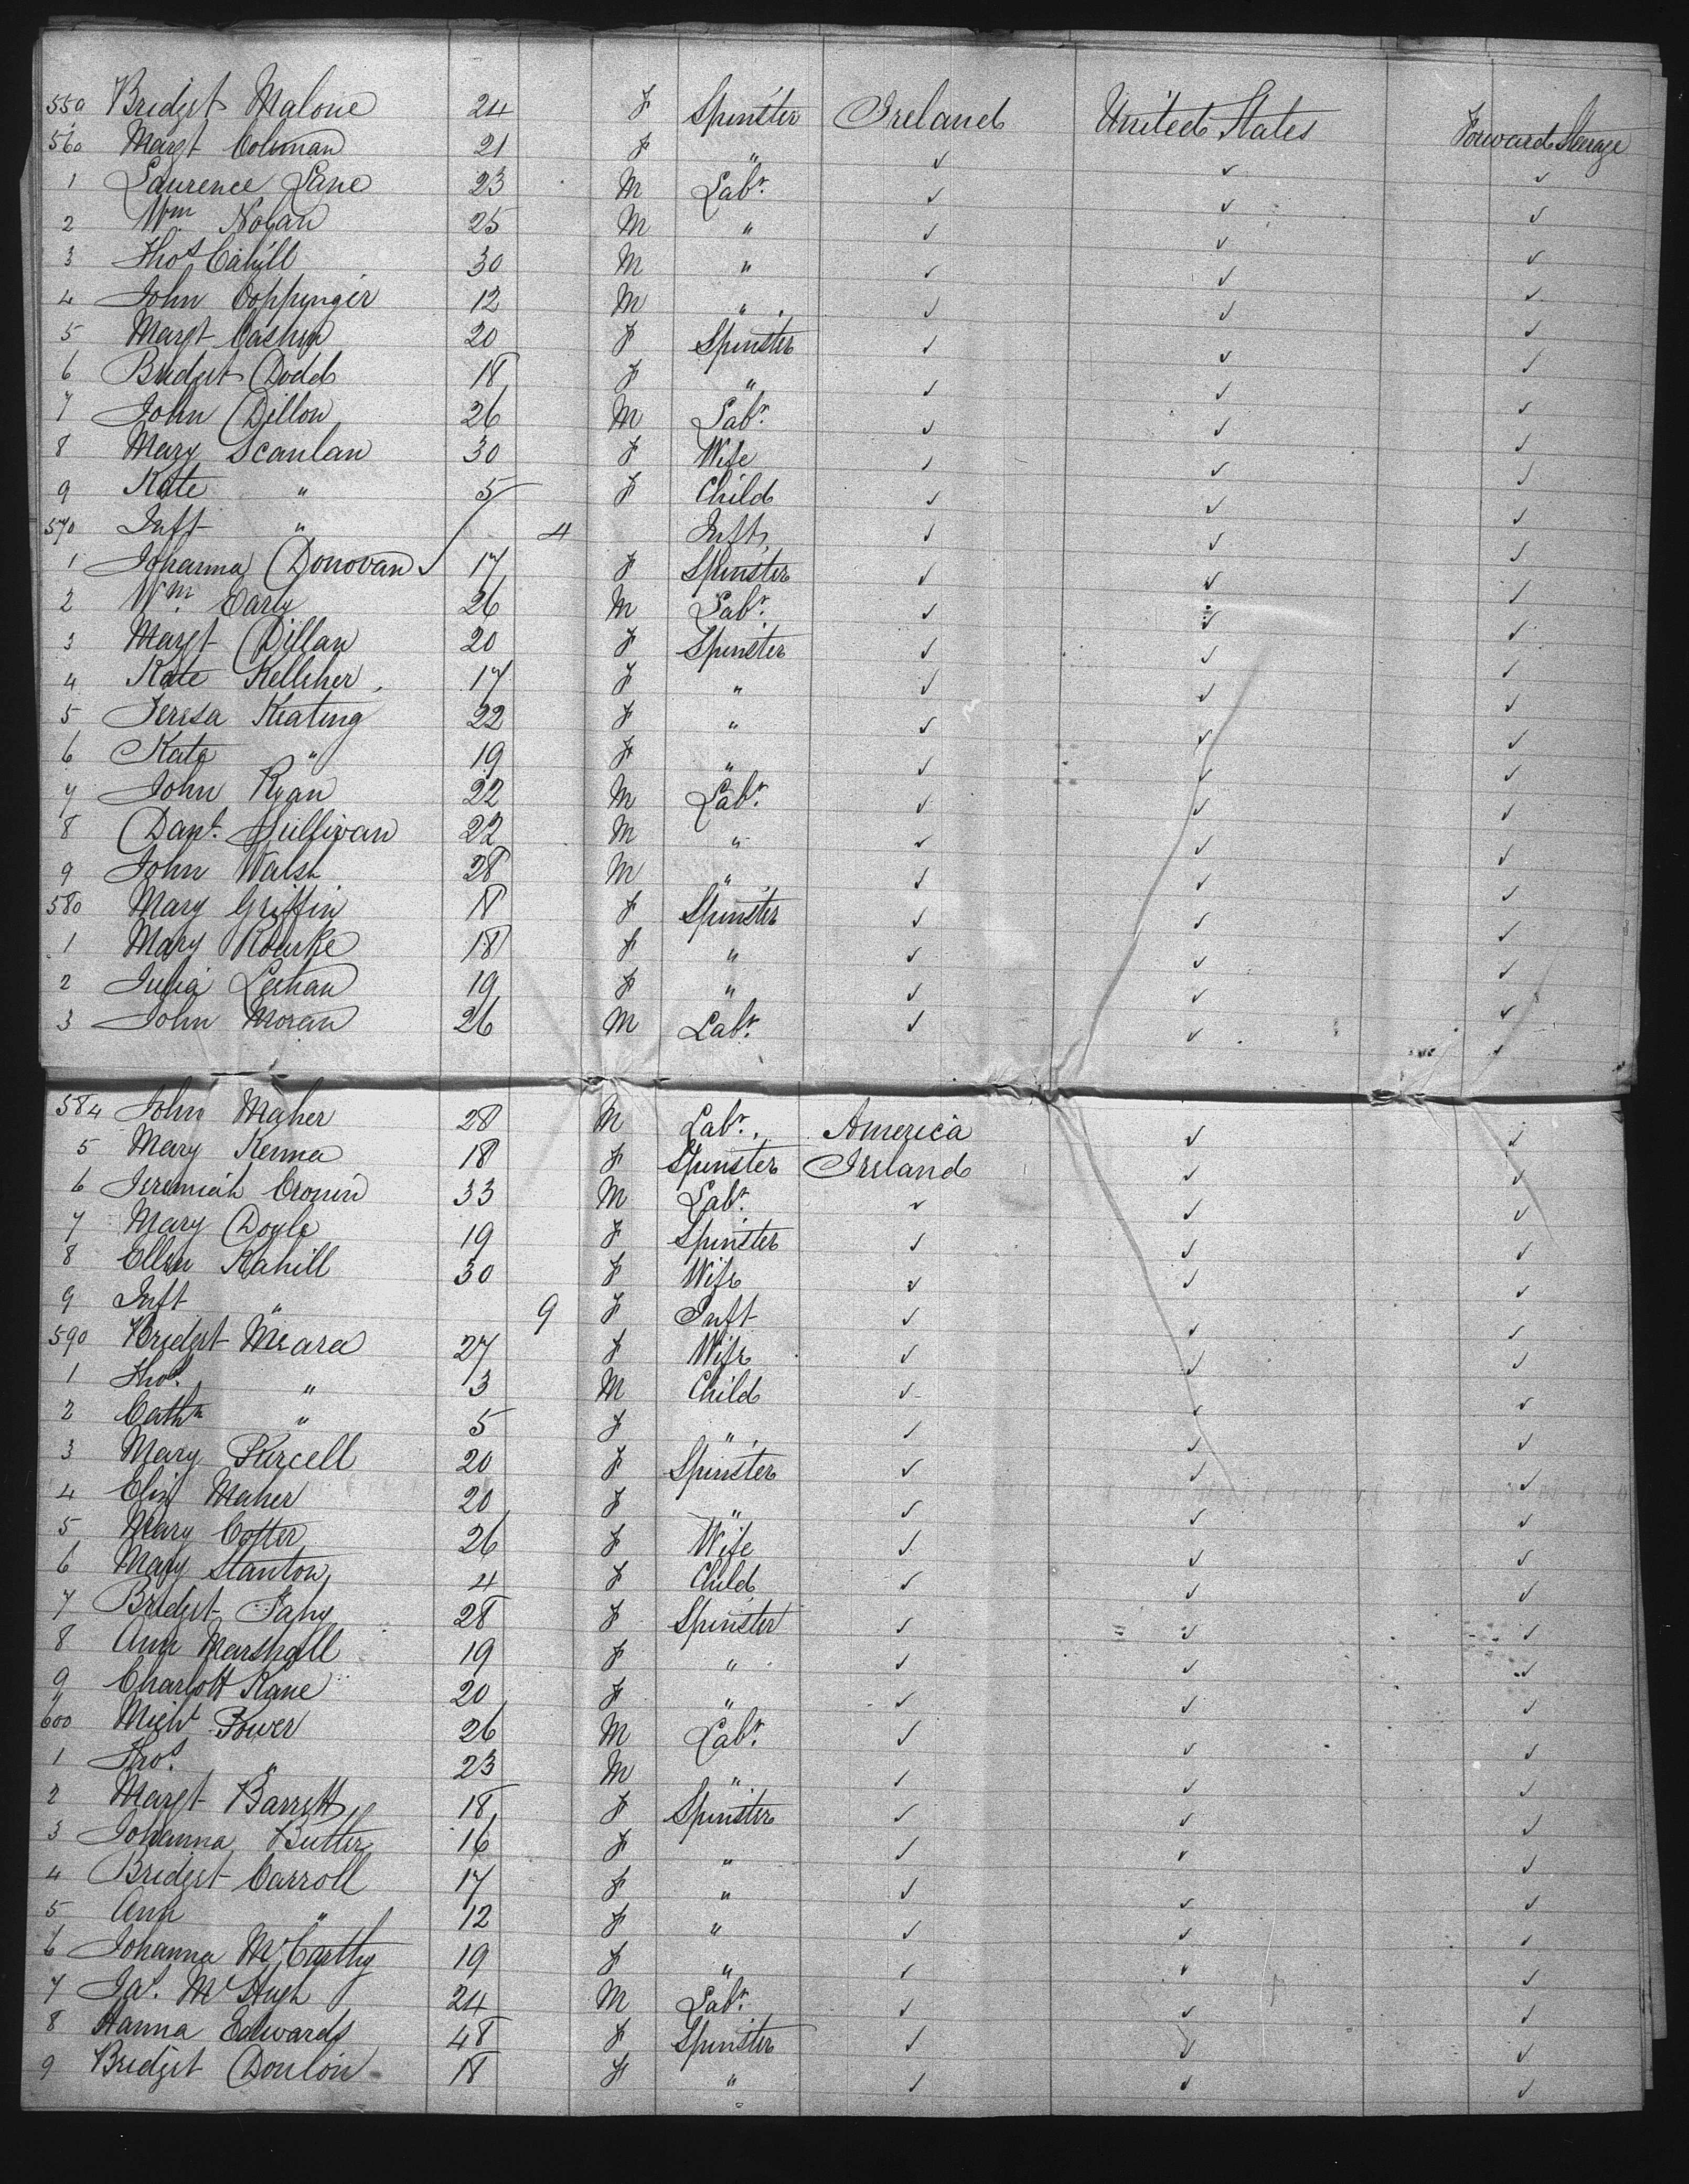 559 Bridget Malone 24 F Spinster Ireland United States Forward Steerage
560 Margt Colman 21 F " ✓ ✓ ✓
1 Laurence Lane 23 M Labr. ✓ ✓ ✓
2 Wm Nolan 25 M " ✓ ✓ ✓
3 Thos Cahill 30 M " ✓ ✓ ✓
4 John Coppinger 12 M " ✓ ✓ ✓
5 Margt Cashen 20 F Spinster ✓ ✓ ✓
6 Bridget Dodd 18 F " ✓ ✓ ✓
7 John Dillon 26 M Labr. ✓ ✓ ✓
8 Mary Scanlan 30 F Wife ✓ ✓ ✓
9 Kate " 5 F Child ✓ ✓ ✓
570 Inft " 4 Inft ✓ ✓ ✓
1 Johanna Donovan 17 F Spinster ✓ ✓ ✓
2 Wm. Early 26 M Labr. ✓ ✓ ✓
3 Margt Dillan 20 F Spinster ✓ ✓ ✓
4 Kate Kelliher 17 F " ✓ ✓ ✓
5 Teresa Keating 22 F " ✓ ✓ ✓
6 Kate " 19 F " ✓ ✓ ✓
7 John Ryan 22 M Labr. ✓ ✓ ✓
8 Danl. Sullivan 22 M " ✓ ✓ ✓
9 John Walsh 28 M " ✓ ✓ ✓
580 Mary Griffin 18 F Spinster ✓ ✓ ✓
1 Mary Rourke 18 F " ✓ ✓ ✓
2 Julia Leehan 19 F " ✓ ✓ ✓
3 John Moran 26 M Labr. ✓ ✓ ✓
584 John Maher 28 M Labr. America ✓ ✓
5 Mary Kenna 18 F Spinster Ireland ✓ ✓
6 Jeremiah Cronin 33 M Labr. ✓ ✓ ✓
7 Mary Doyle 19 F Spinster ✓ ✓ ✓
8 Ellen Kahill 30 F Wife ✓ ✓ ✓
9 Inft " 9 F Inft ✓ ✓ ✓
590 Bridget Meara 27 F Wife ✓ ✓ ✓
1 Thos. " 13 M Child ✓ ✓ ✓
2 Cathn " 5 F " ✓ ✓ ✓
3 Mary Purcell 20 F Spinster ✓ ✓ ✓
4 Eliz Maher 20 F " ✓ ✓ ✓
5 Mary Cotter 26 F Wife ✓ ✓ ✓
6 Mary Stanton 4 F Child ✓ ✓ ✓
7 Bridget Fahy 28 F Spinster ✓ ✓ ✓
8 Ann Marshall 19 F " ✓ ✓ ✓
9 Charlott Kane 20 F " ✓ ✓ ✓
600 Michl Power 26 M Labr. ✓ ✓ ✓
1 Thos. " 23 M " ✓ ✓ ✓
2 Margt Barrett 18 F Spinster ✓ ✓ ✓
3 Johanna Butler 16 F " ✓ ✓ ✓
4 Bridget Carroll 17 F " ✓ ✓ ✓
5 Ann " 12 F " ✓ ✓ ✓
6 Johanna McCarthy 19 F " ✓ ✓ ✓
7 Jas. McHugh 24 M Labr. ✓ ✓ ✓
8 Hanna Edwards 48 F Spinster ✓ ✓ ✓
9 Bridget Donlon 18 F " ✓ ✓ ✓